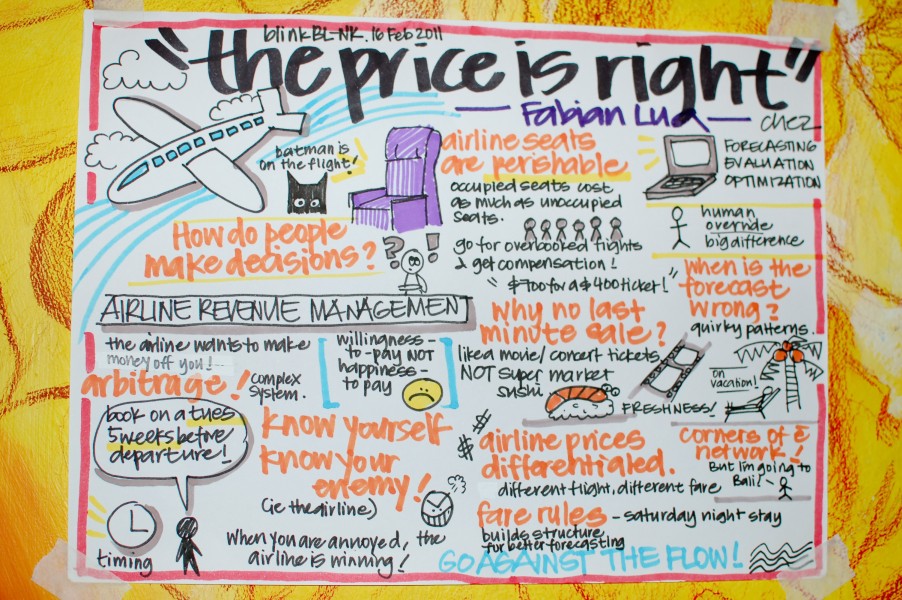 blinkBL-NK. 16 Feb 2011
"the price is right"
— Fabian Lua —
chez
batman is
on the flight!
airline seats
are perishable
occupied seats cost
as much as unoccupied
seats.
go for overbooked flights
& get compensation!
"$700 for a $400 ticket!"
FORECASTING
EVALUATION
OPTIMIZATION
human
override
big difference
How do people
make decisions?
?!
AIRLINE REVENUE MANAGEMENT
when is the
forecast
wrong?
quirky patterns.
on
vacation!
why no last
minute sale?
like a movie/concert tickets
NOT super market
sushi
FRESHNESS!
the airline wants to make
money off you!
arbitrage!
complex
system.
willingness-
to-pay NOT
happiness-
to pay
book on a tues
5 weeks before
departure!
timing
know yourself
know your
enemy!
(ie the airline)
when you are annoyed, the
airline is winning!
$
$
$
airline prices
differentialed.
different flight, different fare
corners of e
network!
But I'm going to
Bali!
fare rules - saturday night stay
builds structure
for better forecasting
GO AGAINST THE FLOW!